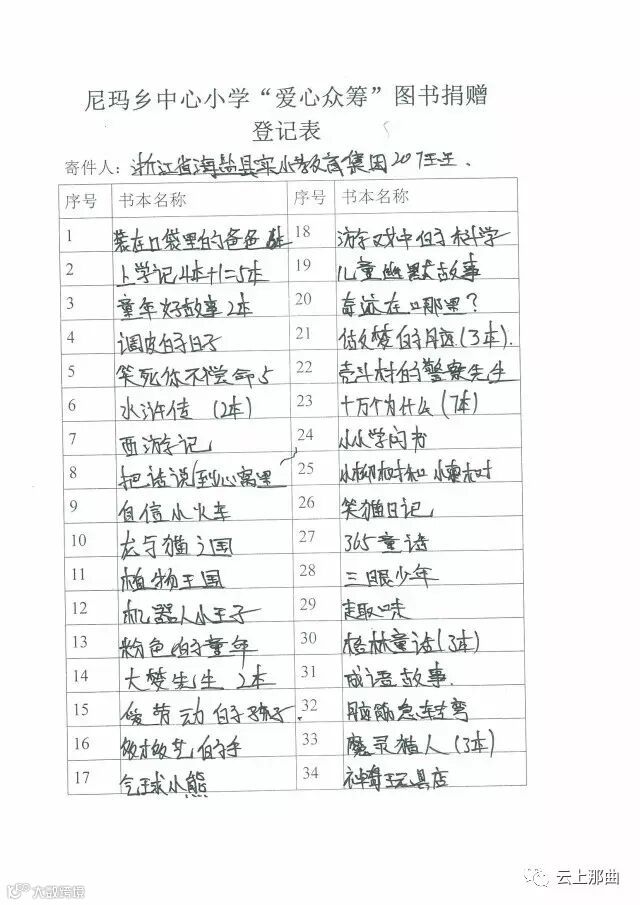 尼玛乡中心小学“爱心众筹”图书捐赠
登记表
寄件人：浙江省海盐县实小教育集团207
序号 书本名称 序号 书本名称
1 装在口袋里的爸爸 18 游戏中的科学
2 上学记4本+1=5本 19 儿童幽默故事
3 童年好故事2本 20 奇迹在哪里？
4 调皮的日子 21 做梦的(3本).
5 笑死你不偿命5 22 壳斗村的警察先生
6 水浒传 (2本) 23 十万个为什么(7本)
7 西游记 24 小小学问书
8 把话说到心窝里 25 小柳树和小枣树
9 自信小火车 26 笑猫日记
10 龙与猫之国 27 365童话
11 植物王国 28 三眼少年
12 机器人小王子 29 趣味
13 粉色的童年 30 格林童话(3本)
14 大梦先生 2本 31 成语故事.
15 爱劳动的孩子. 32 脑筋急转弯
16 的手 33 魔灵猎人(3本)
17 气球小熊 34 神奇玩具店
大数跨境
云上那曲